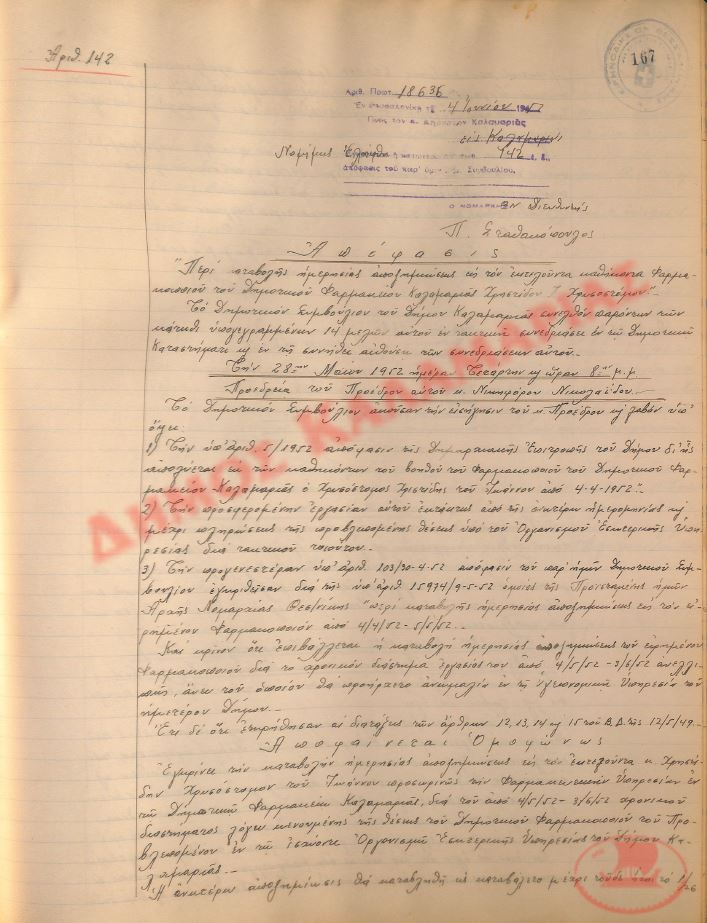 Ἀριθ. 142
167
Ἀριθ. Πρωτ. 18636
Ἐν Θεσσαλονίκῃ τῇ 4 Ἰουνίου 1952
Πρὸς τὸν κ. Δήμαρχον Καλαμαριᾶς
εἰς Καλαμαριὰν
Νομίμως 142
ἀπόφασις τοῦ καθ' ὑμᾶς Δ. Συμβουλίου.
Ο ΝΟΜΑΡΧΗΣ Διευθυντής
Π. Σταθακόπουλος
Ἀπόφασις
"Περὶ καταβολῆς ἡμερησίας ἀποζημιώσεως εἰς τὸν ἐκτελοῦντα καθήκοντα Φαρμα-
κοποιοῦ τοῦ Δημοτικοῦ Φαρμακείου Καλαμαριᾶς Χρηστίδου Ι. Χρυσοστόμου."
Τὸ Δημοτικὸν Συμβούλιον τοῦ Δήμου Καλαμαριᾶς συνελθὸν παρόντων τῶν
κάτωθι ὑπογεγραμμένων 14 μελῶν αὐτοῦ ἐν τακτικῇ συνεδριάσει ἐν τῷ Δημοτικῷ
Καταστήματι κ) ἐν τῇ συνήθει αἰθούσῃ τῶν συνεδριάσεων αὐτοῦ.
Τὴν 28ην Μαΐου 1952 ἡμέραν Τετάρτην κ) ὥραν 8ην μ.μ.
Προεδρείᾳ τοῦ Προέδρου αὐτοῦ κ. Νικηφόρου Νικολαΐδου.
Τὸ Δημοτικὸν Συμβούλιον ἀκοῦσαν τὴν εἰσήγησιν τοῦ κ. Προέδρου κ) λαβὸν ὑπ'
ὄψει:
1) Τὴν ὑπ' ἀριθ. 5/1952 ἀπόφασιν τῆς Δημαρχιακῆς Ἐπιτροπῆς τοῦ Δήμου δι' ἧς
ἀπολύεται ἐκ τῶν καθηκόντων τοῦ βοηθοῦ τοῦ Φαρμακοποιοῦ τοῦ Δημοτικοῦ Φαρ-
μακείου Καλαμαριᾶς ὁ Χρυσόστομος Χρηστίδης τοῦ Ἰωάννου ἀπὸ 4-4-1952".
2) Τὴν προσφερομένην ἐργασίαν αὐτοῦ ἐκτάκτως ἀπὸ τῆς ἀνωτέρω ἡμερομηνίας κ)
μέχρι πληρώσεως τῆς προβλεπομένης θέσεως ὑπὸ τοῦ Ὀργανισμοῦ Ἐσωτερικῆς Ὑπη-
ρεσίας διὰ τακτικοῦ τοιούτου.
3) Τὴν προγενεστέραν ὑπ' ἀριθ. 103/30-4-52 ἀπόφασιν τοῦ παρ' ἡμῖν Δημοτικοῦ Συμ-
βουλίου ἐγκριθεῖσαν διὰ τῆς ὑπ' ἀριθ. 15974/9-5-52 ὁμοίας τῆς Προϊσταμένης ἡμῶν
Ἀρχῆς Νομαρχίας Θεσ/νίκης "περὶ καταβολῆς ἡμερησίας ἀποζημιώσεως εἰς τὸν εἰ-
ρημένον Φαρμακοποιὸν ἀπὸ 4/4/52 - 3/5/52.
Καὶ κρῖνον ὅτι ἐπιβάλλεται ἡ καταβολὴ ἡμερησίας ἀποζημιώσεως τοῦ εἰρημένου
Φαρμακοποιοῦ διὰ τὸ χρονικὸν διάστημα ἐργασίας του ἀπὸ 4/5/52 - 3/6/52 ἀνελλι-
πῶς, ἄνευ τοῦ ὁποίου θὰ προήρχετο ἀνωμαλία ἐν τῇ ὑγειονομικῇ Ὑπηρεσίᾳ τοῦ
ἡμετέρου Δήμου.
Ἔτι δὲ ὅτι ἐτηρήθησαν αἱ διατάξεις τῶν ἄρθρων 12, 13, 14 κ) 15 τοῦ Β.Δ. τῆς 12/5/49.
Ἀποφαίνεται Ὁμοφώνως
Ἐγκρίνει τὴν καταβολὴν ἡμερησίας ἀποζημιώσεως εἰς τὸν ἐκτελοῦντα κ. Χρηστί-
δην Χρυσόστομον τοῦ Ἰωάννου προσωρινῶς τὴν Φαρμακευτικὴν Ὑπηρεσίαν ἐν
τῷ Δημοτικῷ Φαρμακείῳ Καλαμαριᾶς, διὰ τὸ ἀπὸ 4/5/52 - 3/6/52 χρονικοῦ
διαστήματος λόγῳ κενουμένης τῆς θέσεως τοῦ Δημοτικοῦ Φαρμακοποιοῦ τοῦ Προ-
βλεπομένου ἐν τῷ ἰσχύοντι Ὀργανισμῷ Ἐσωτερικῆς Ὑπηρεσίας τοῦ Δήμου Κα-
λαμαριᾶς.
Ἡ ἀνωτέρω ἀποζημίωσις θὰ καταβληθῇ ὡς κατεβάλετο μέχρι τοῦδε τὸ 1/26
ΔΗΜΟΣ ΚΑΛΑΜΑΡΙΑΣ